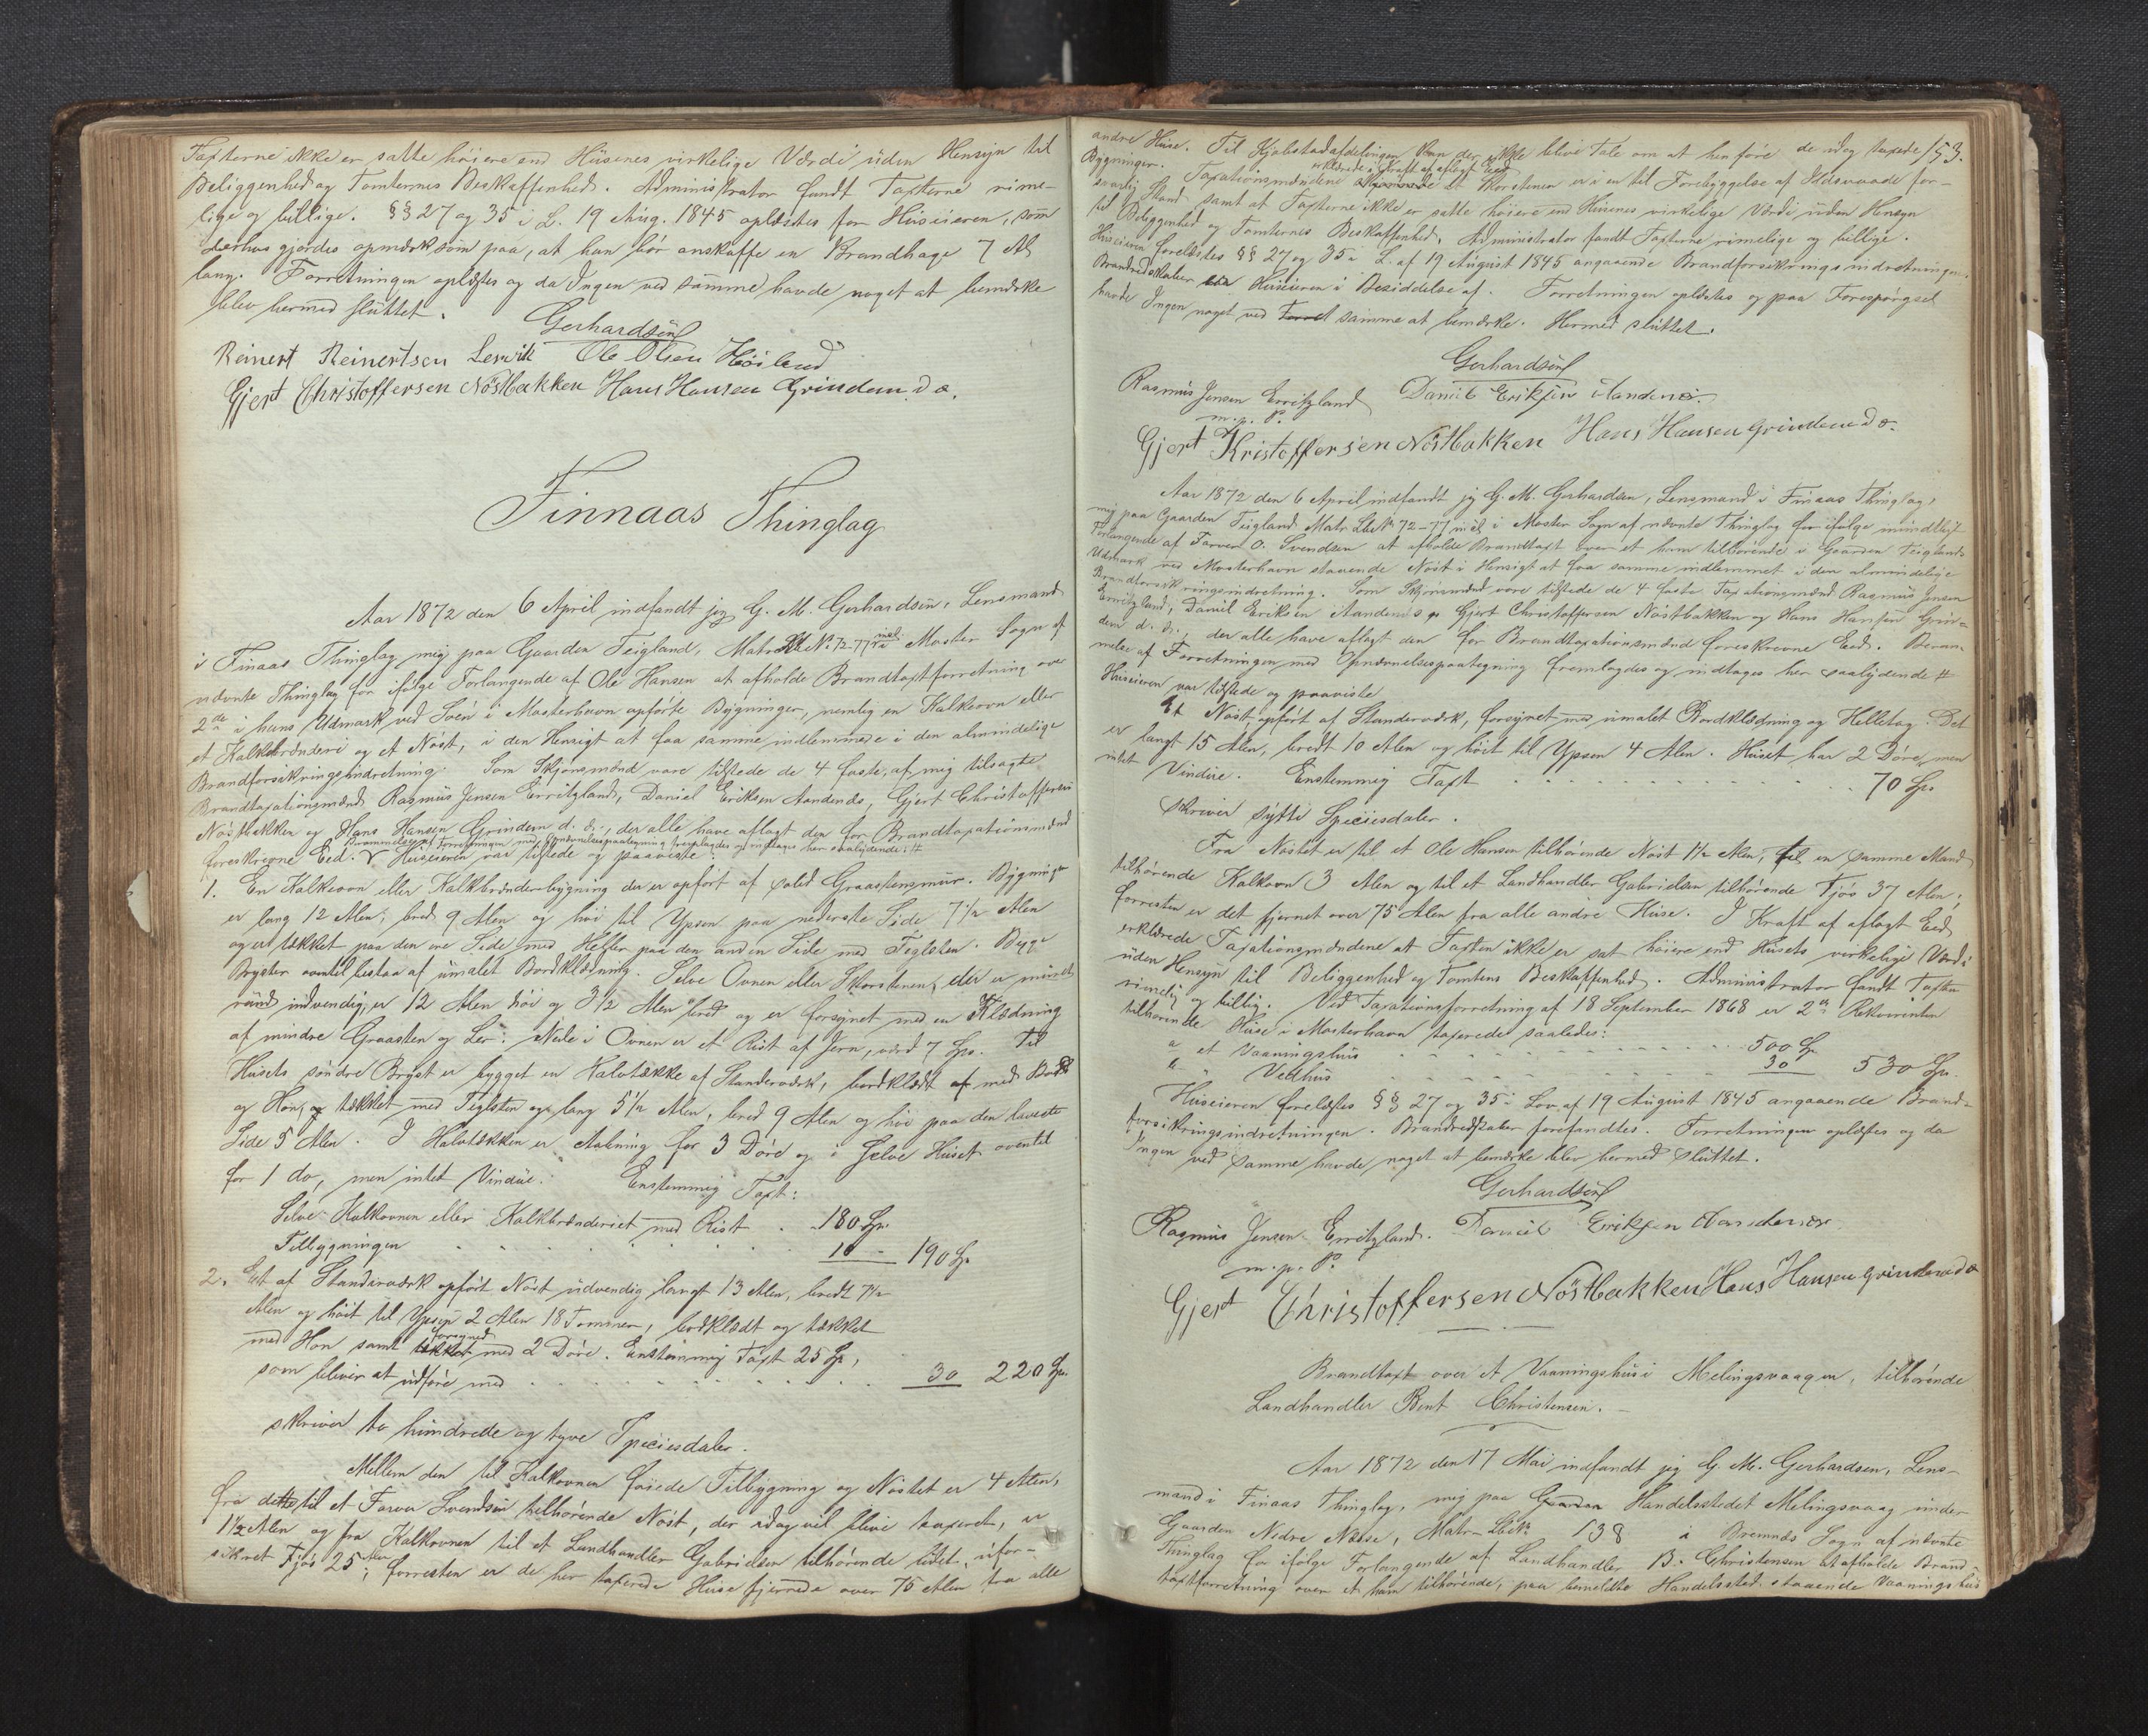 Taxterne ikke er satte høiere end Hüsenes virkelige Værdi üden Hensyn til
Beliggenhed og Tomternes Beskaffenhed. Administrator fandt Taxterne rime-
lige og billige. §§ 27 og 35 i L. 19 Aug. 1845 oplæstes for Hüseieren, som
derhos gjordes opmærksom paa, at han bør anskaffe en Brandhage 7 Al
lang. Forretningen oplæstes og da Ingen ved samme havde noget at bemærke
blev hermed slüttet.
Gerhardsen
Reinert Reinertsen Lervik Ole Olsen Høiland
Gjert Christoffersen Nöstbakken Hans Hansen Grindem d. æ.
Finnaas Thinglag
Aar 1872 den 6 April indfandt jeg G. M. Gerhardsen, Lensmand
i Finaas Thinglag mig paa Gaarden Teigland, Matr LbNo 72-77 incl. i Moster Sogn af
nævnte Thinglag for ifølge Forlangende af Ole Hansen at afholde Brandtaxtforretning over
2de i hans Udmark ved Søen i Mosterhavn opførte Bygninger, nemlig en Kalkovn eller
et Kalkbrænderi og et Nöst, i den Hensigt at faa samme indlemmede i den almindelige
Brandforsikringsindretning. Som Skjønsmænd vare tilstede de 4 faste, af mig tilsagte
Brandtaxationsmænd Rasmus Jensen Erritzland, Daniel Eriksen Aandenæs, Gjert Christoffersen
Nöstbakken og Hans Hansen Grindem d. æ., der alle have aflagt den for Brandtaxationsmænd
Berammelse af Forretningen med Opnævnelsespaategning fremlagdes og indtages her saalydende: #
foreskrevne Eed. Hüseieren var tilstede og paaviste:
1. En Kalkovn eller Kalkbrænderbygning der er opført af solid Graastensmür. Bygningen
er lang 12 Alen, bred 9 Alen og høi til Ypsen paa nederste Side 7½ Alen
og er tækket paa den ene Side med Heller paa den anden Side med Teglsten. Bygn
Bryster oventil bestaa af ümalet Bordklædning. Selve Ovnen eller Skorstenen, der er müret
ründ indvendig, er 12 Alen høi og 3½ Alen bred og er forsynet med en Klædning
af mindre Graasten og Ler. Nede i Ovnen er et Rist af Jern, værd 7 Spd. Til
Hüsets søndre Bryst er bygget en Halvtække af Standerværk, bordklædt med Bord
og Hon, og tækket med Teglsten og lang 5½ Alen, bred 9 Alen og høi paa den laveste
Side 5 Alen. I Halvtækken er Aabning for 3 Døre og i Selve Hüset oventil
for 1 do, men intet Vindüe. Enstemmig Taxt:
Selve Kalkovnen eller Kalkbrænderiet med Rist . 180 Spd.
Tilbygningen 10 - 190 Sp.
2. Et af Standerværk opført Nöst üdvendig langt 13 Alen, bredt 7½
Alen og høit til Ypsen 2 Alen 18 Tommer, bordklædt og tækket
med Hon samt forsynet med 2 Døre. Enstemmig Taxt 25 Sp.,
som bliver at üdføre med 30 220 Spd.
skriver to hündrede og tyve Speciesdaler.
Mellem den til Kalkovnen føiede Tilbygning og Nöstet er 4 Alen,
fra dette til et Farver Svendsen tilhørende Nöst, der idag vil blive taxeret, er
1½ Alen og fra Kalkovnen til et Landhandler Gabrielsen tilhørende lidet, üfor-
sikret Fjøs 25 Alen; forresten er de her taxerede Hüse fjernede over 75 Alen fra alle
153.
andre Hüse. Til Kjøbstadafdelingen kan der ikke blive Tale om at henføre de idag taxerede
Bygninger. Taxationsmændene erklærede i Kraft af aflagt Eed at Skorstenen er i en til Forebyggelse af Ildsvaade for-
svarlig Stand samt at Taxterne ikke er satte høiere end Hüsenes virkelige Værdi üden Hensyn
til Beliggenhed og Tomternes Beskaffenhed. Administrator fandt Taxterne rimelige og billige.
Hüseieren forelæstes §§ 27 og 35 i L. af 19 August 1845 angaaende Brandforsikringsindretningen.
Brandredskaber er Hüseieren i Besiddelse af. Forretningen oplæstes og paa Forespørgsel
havde Ingen noget ved samme at bemærke. Hermed slüttet.
Gerhardsen
Rasmüs Jensen Erritzland Daniel Eriksen Aandenæs.
m. p. P.
Gjert Kristoffersen Nöstbakken Hans Hansen Grindem d æ.
Aar 1872 den 6 April indfandt jeg G. M. Gerhardsen, Lensmand i Finaas Thinglag,
mig paa Gaarden Teigland Matr LbNo 72-77 incl. i Moster Sogn af nævnte Thinglag for ifølge mündtligt
Forlangende af Farver O. Svendsen at afholde Brandtaxt over et ham tilhørende i Gaarden Teiglands
Udmark ved Mosterhavn staaende Nöst i Hensigt at faa samme indlemmet i den almindelige
Brandforsikringsindretning. Som Skjønsmænd vare tilstede de 4 faste Taxationsmænd Rasmus Jensen
Erritzland, Daniel Eriksen Aandenæs, Gjert Christoffersen Nöstbakken og Hans Hansen Grin-
dem d. æ., der alle have aflagt den for Brandtaxationsmænd foreskrevne Eed. Beram-
melse af Forretningen med Opnævnelsespaategning fremlagdes og indtages her saalydende #
Hüseieren var tilstede og paaviste
Et Nöst, opført af Standerværk, forsynet med ümalet Bordklædning og Helletag. Det
er langt 15 Alen, bredt 10 Alen og høit til Ypsen 4 Alen. Hüset har 2 Døre, men
intet Vindüe. Enstemmig Taxt 70 Spd.
skriver sytti Speciesdaler.
Fra Nöstet er til et Ole Hansen tilhørende Nöst 1½ Alen, til en samme Mand
tilhørende Kalkovn 3 Alen og til et Landhandler Gabrielsen tilhørende Fjøs 37 Alen;
forresten er det fjernet over 75 Alen fra alle andre Hüse. I Kraft af aflagt Eed
erklærede Taxationsmændene at Taxten ikke er sat høiere end Hüsets virkelige Værdi
üden Hensyn til Beliggenhed og Tomtens Beskaffenhed. Administrator fandt Taxten
rimelig og billig. Ved Taxationsforretning af 18 September 1868 er 2de Rekvirenten
tilhørende Hüse i Mosterhavn taxerede saaledes:
a et Vaaningshüs 500 Sp.
b " Vedhüs 30 530 Spd.
Hüseieren forelæstes §§ 27 og 35 i Lov af 19 August 1845 angaaende Brand-
forsikringsindretningen. Brandredskaber forefandtes. Forretningen oplæstes og da
Ingen ved samme havde noget at bemærke blev hermed slüttet.
Gerhardsen
Rasmüs Jensen Erritzland. Daniel Eriksen Aandenæs
m. p. P.
Gjert Christoffersen Nöstbakken Hans Hansen Grindem d æ
Brandtaxt over et Vaaningshüs i Melingsvaagen, tilhørende
Landhandler Bent Christensen.
Aar 1872 den 17 Mai indfandt jeg G. M. Gerhardsen, Lens-
mand i Finaas Thinglag, mig paa Gaarden Handelsstedet Melingsvaag ünder
Gaarden Nedre Næsse, Matr-LbNo 138 i Bremnæs Sogn af nævnte
Thinglag for ifølge Forlangende af Landhandler B. Christensen at afholde Brand-
taxtforretning over et ham tilhørende, paa bemeldte Handelssted staaende Vaaningshüs